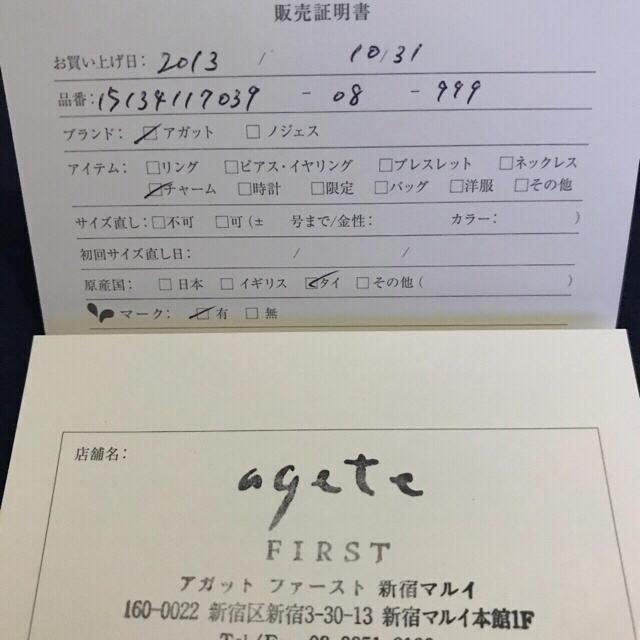 販売証明書
お買い上げ日: 2013 / 10/31
品番: 15134117039 - 08 - 999
ブランド: ☑ アガット □ ノジェス
アイテム: □リング □ピアス・イヤリング □ブレスレット □ネックレス
☑チャーム □時計 □限定 □バッグ □洋服 □その他
サイズ直し: □不可 □可(± 号まで/金性: カラー: )
初回サイズ直し日: / /
原産国: □ 日本 □ イギリス ☑タイ □その他( )
マーク: ☑ 有 □ 無
店舗名:
agete
FIRST
アガット ファースト 新宿マルイ
160-0022 新宿区新宿3-30-13 新宿マルイ本館1F